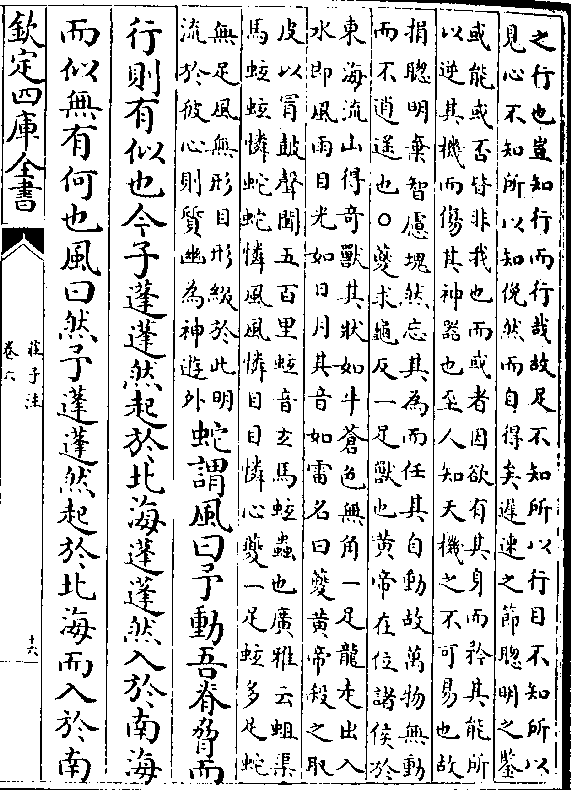 之行也豈知行而行哉故足不知所以行目不知所以
見心不知所以知俛然而自得矣遲速之節聰明之鑒
或能或否皆非我也而或者因欲有其身而矜其能所
以逆其機而傷其神器也至人知天機之不可易也故
捐聰明棄智慮塊然忘其為而任其自動故萬物無動
而不逍遥也○夔求龜反一足獸也黄帝在位諸侯於
東海流山得奇獸其狀如牛蒼色無角一足能走出入
水即風雨目光如日月其音如雷名曰夔黄帝殺之取
皮以冐鼓聲聞五百里蚿音玄馬蚿蟲也廣雅云蛆渠
馬蚿蚿憐蛇蛇憐風風憐目目憐心夔一足蚿多足蛇
無足風無形目形綴於此明
流於彼心則質幽為神遊外
蛇謂風曰予動吾脊脅而
行則有似也今子蓬蓬然起於北海蓬蓬然入於南海
而似無有何也風曰然予蓬蓬然起於北海而入於南
欽定四庫全書
莊子注
卷六
十六